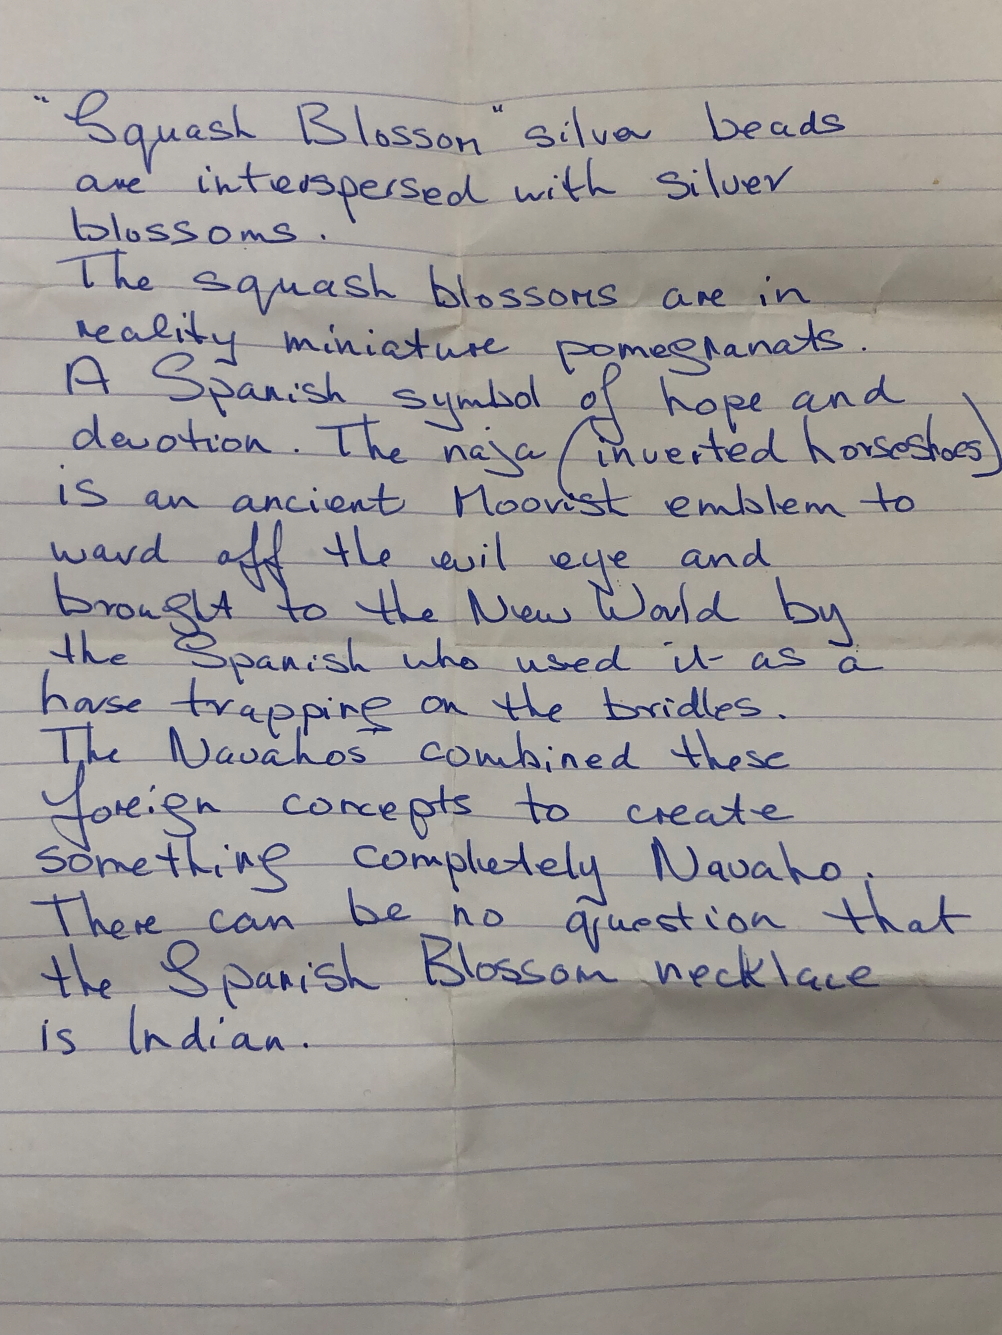 "Squash Blosson" silver beads
are interspersed with silver
blossoms.
The squash blossoms are in
reality miniature pomegranats.
A Spanish symbol of hope and
devotion. The naja (inverted horseshoes)
is an ancient Moorist emblem to
ward off the evil eye and
brought to the New World by
the Spanish who used it as a
horse trapping on the bridles.
The Navahos combined these
foreign concepts to create
something completely Navaho.
There can be no question that
the Spanish Blossom necklace
is Indian.